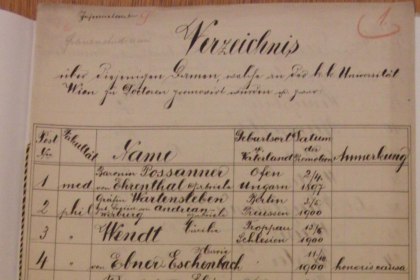 1
Verzeichnis
über diejenigen Damen, welche an der k.k. Universität
Wien zu Doktoren promovirt wurden u. zwar:
Post Nr. Fakultät Name Geburtsort u. Vaterland Datum der Promotion Anmerkung
1 med Baronin Possanner von Ehrenthal Gabriele Ofen Ungarn 2/4 1897
2 phil Gräfin Wartensleben Gabriele Berlin Preussen 1900
3 " Wendt Cäcilie Troppau Schlesien 1900
4 " von Ebner Eschenbach Marie 1900 honoris causa